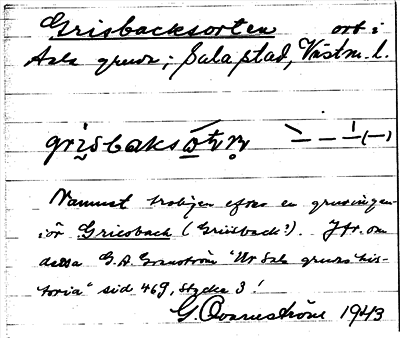 Grisbacksorten ort i
Sala gruva; Sala stad, Västm. l.
grisbaks
Namnet troligen efter en gruvingen-
iör Griesbach (Grisbach?). Jfr. om
dessa G. A. Granström "Ur Sala gruvas his-
toria" sid 469, stycke 3!
G. Qvarnström 1943